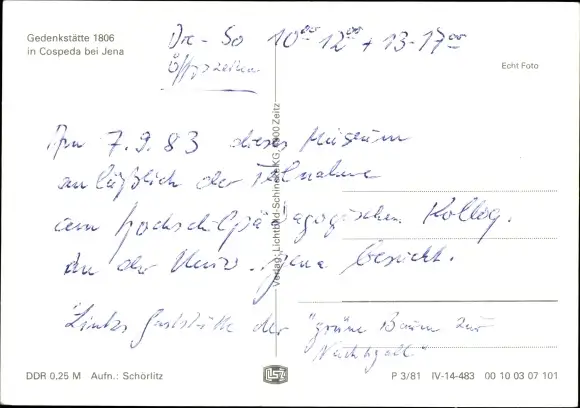 Gedenkstätte 1806
in Cospeda bei Jena
Di - So 10⁰⁰ 12⁰⁰ + 13-17⁰⁰
Öffgszeiten
Echt Foto
Am 7.9.83 dieses Museum
anläßlich der Teilnahme
am hochschulpädagogischen Kolleg.
an der Univ. Jena besucht.
Links Gaststätte der "grüne Baum zur
Nachtigall"
Verlag: Lichtbild-Schincke KG, Zeitz
DDR 0,25 M Aufn.: Schörlitz
P 3/81 IV-14-483 00 10 03 07 101